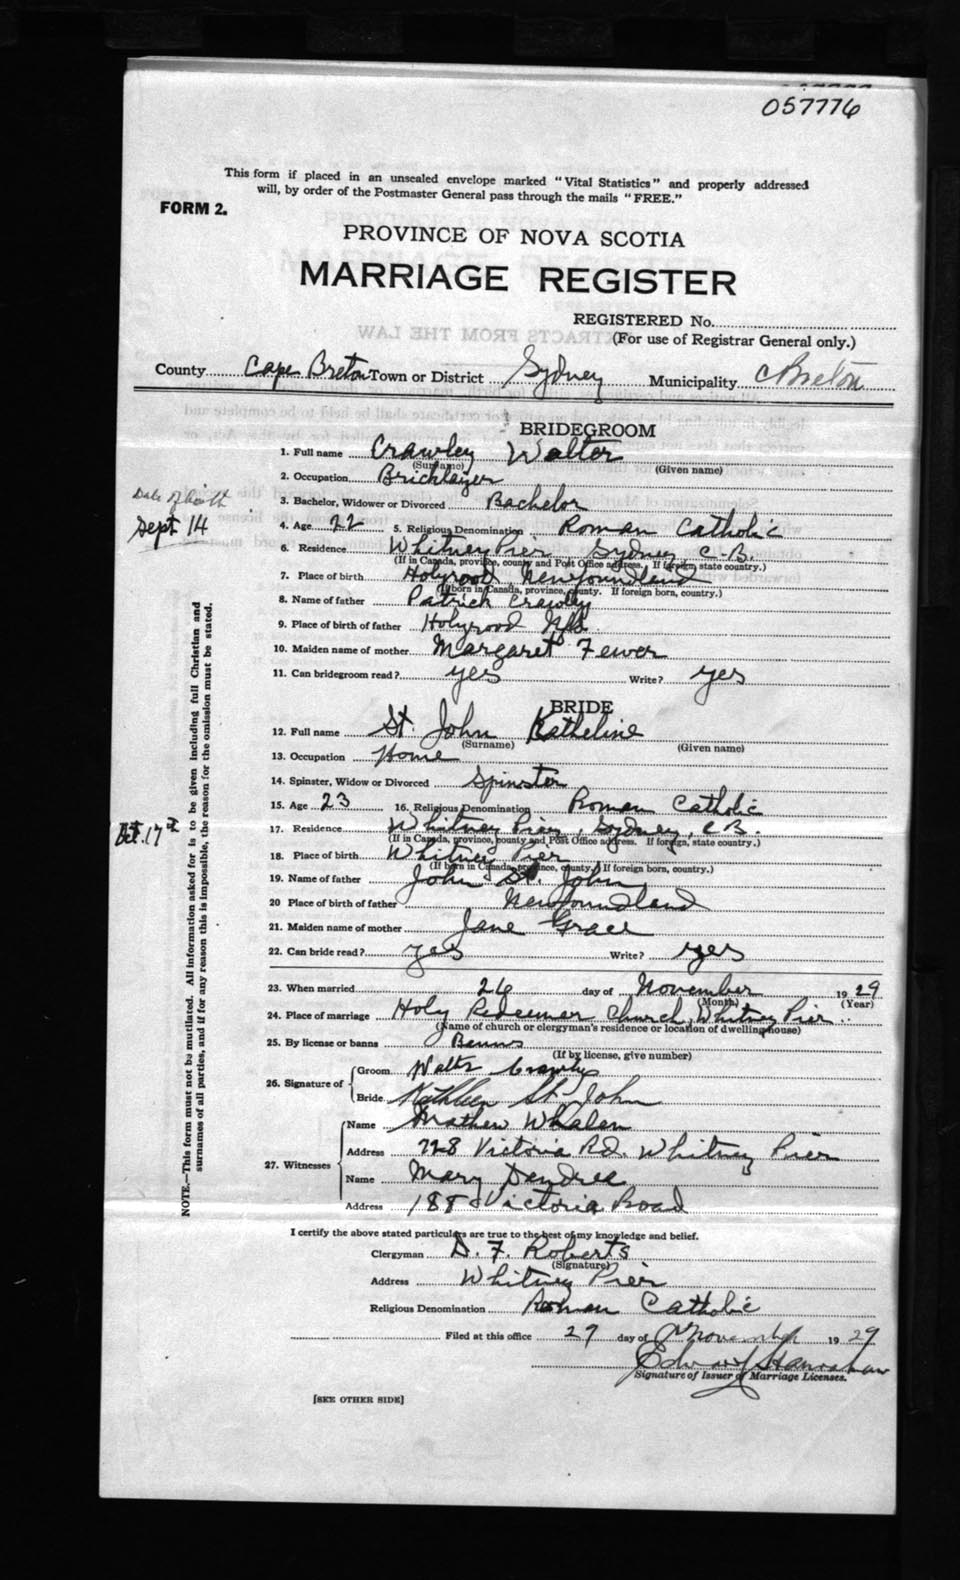 057776
This form if placed in an unsealed envelope marked "Vital Statistics" and properly addressed
will, by order of the Postmaster General pass through the mails "FREE."
FORM 2.
PROVINCE OF NOVA SCOTIA
MARRIAGE REGISTER
REGISTERED No.
(For use of Registrar General only.)
EXTRACTS FROM THE LAW
County Cape Breton Town or District Sydney Municipality C Breton
BRIDEGROOM
1. Full name Crawley Walter
(Surname) (Given name)
2. Occupation Bricklayer
Date of birth
3. Bachelor, Widower or Divorced Bachelor
Sept 14
4. Age 22 5. Religious Denomination Roman Catholic
6. Residence Whitney Pier Sydney C-B.
(If in Canada, province, county and Post Office address. If foreign, state country.)
7. Place of birth Holyrood Newfoundland
(If born in Canada, province, county. If foreign born, country.)
8. Name of father Patrick Crawley
9. Place of birth of father Holyrood Nfld.
10. Maiden name of mother Margaret Fewer
11. Can bridegroom read? yes Write? yes
BRIDE
12. Full name St. John Katheline
(Surname) (Given name)
13. Occupation Home
14. Spinster, Widow or Divorced Spinster
15. Age 23 16. Religious Denomination Roman Catholic
Oct. 17th
17. Residence Whitney Pier, Sydney, C B.
(If in Canada, province, county and Post Office address. If foreign, state country.)
18. Place of birth Whitney Pier
(If born in Canada, province, county. If foreign born, country.)
19. Name of father John St. John
20 Place of birth of father Newfoundland
21. Maiden name of mother Jane Grace
22. Can bride read? yes Write? yes
23. When married 26 day of November 1929
(Month) (Year)
24. Place of marriage Holy Redeemer Church, Whitney Pier
(Name of church or clergyman's residence or location of dwelling house)
25. By license or banns Banns
(If by license, give number)
26. Signature of Groom Walter Crawley
Bride Kathleen St. John
27. Witnesses
Name Mathew Whalen
Address 728 Victoria Rd. Whitney Pier
Name Mary
Address 188 Victoria Road
I certify the above stated particulars are true to the best of my knowledge and belief.
Clergyman D. F. Roberts
(Signature)
Address Whitney Pier
Religious Denomination Roman Catholic
Filed at this office 27 day of November 1929
Edward Hanrahan
Signature of Issuer of Marriage Licenses.
[SEE OTHER SIDE]
NOTE.—This form must not be mutilated. All information asked for is to be given including full Christian and
surnames of all parties, and if for any reason this is impossible, the reason for the omission must be stated.